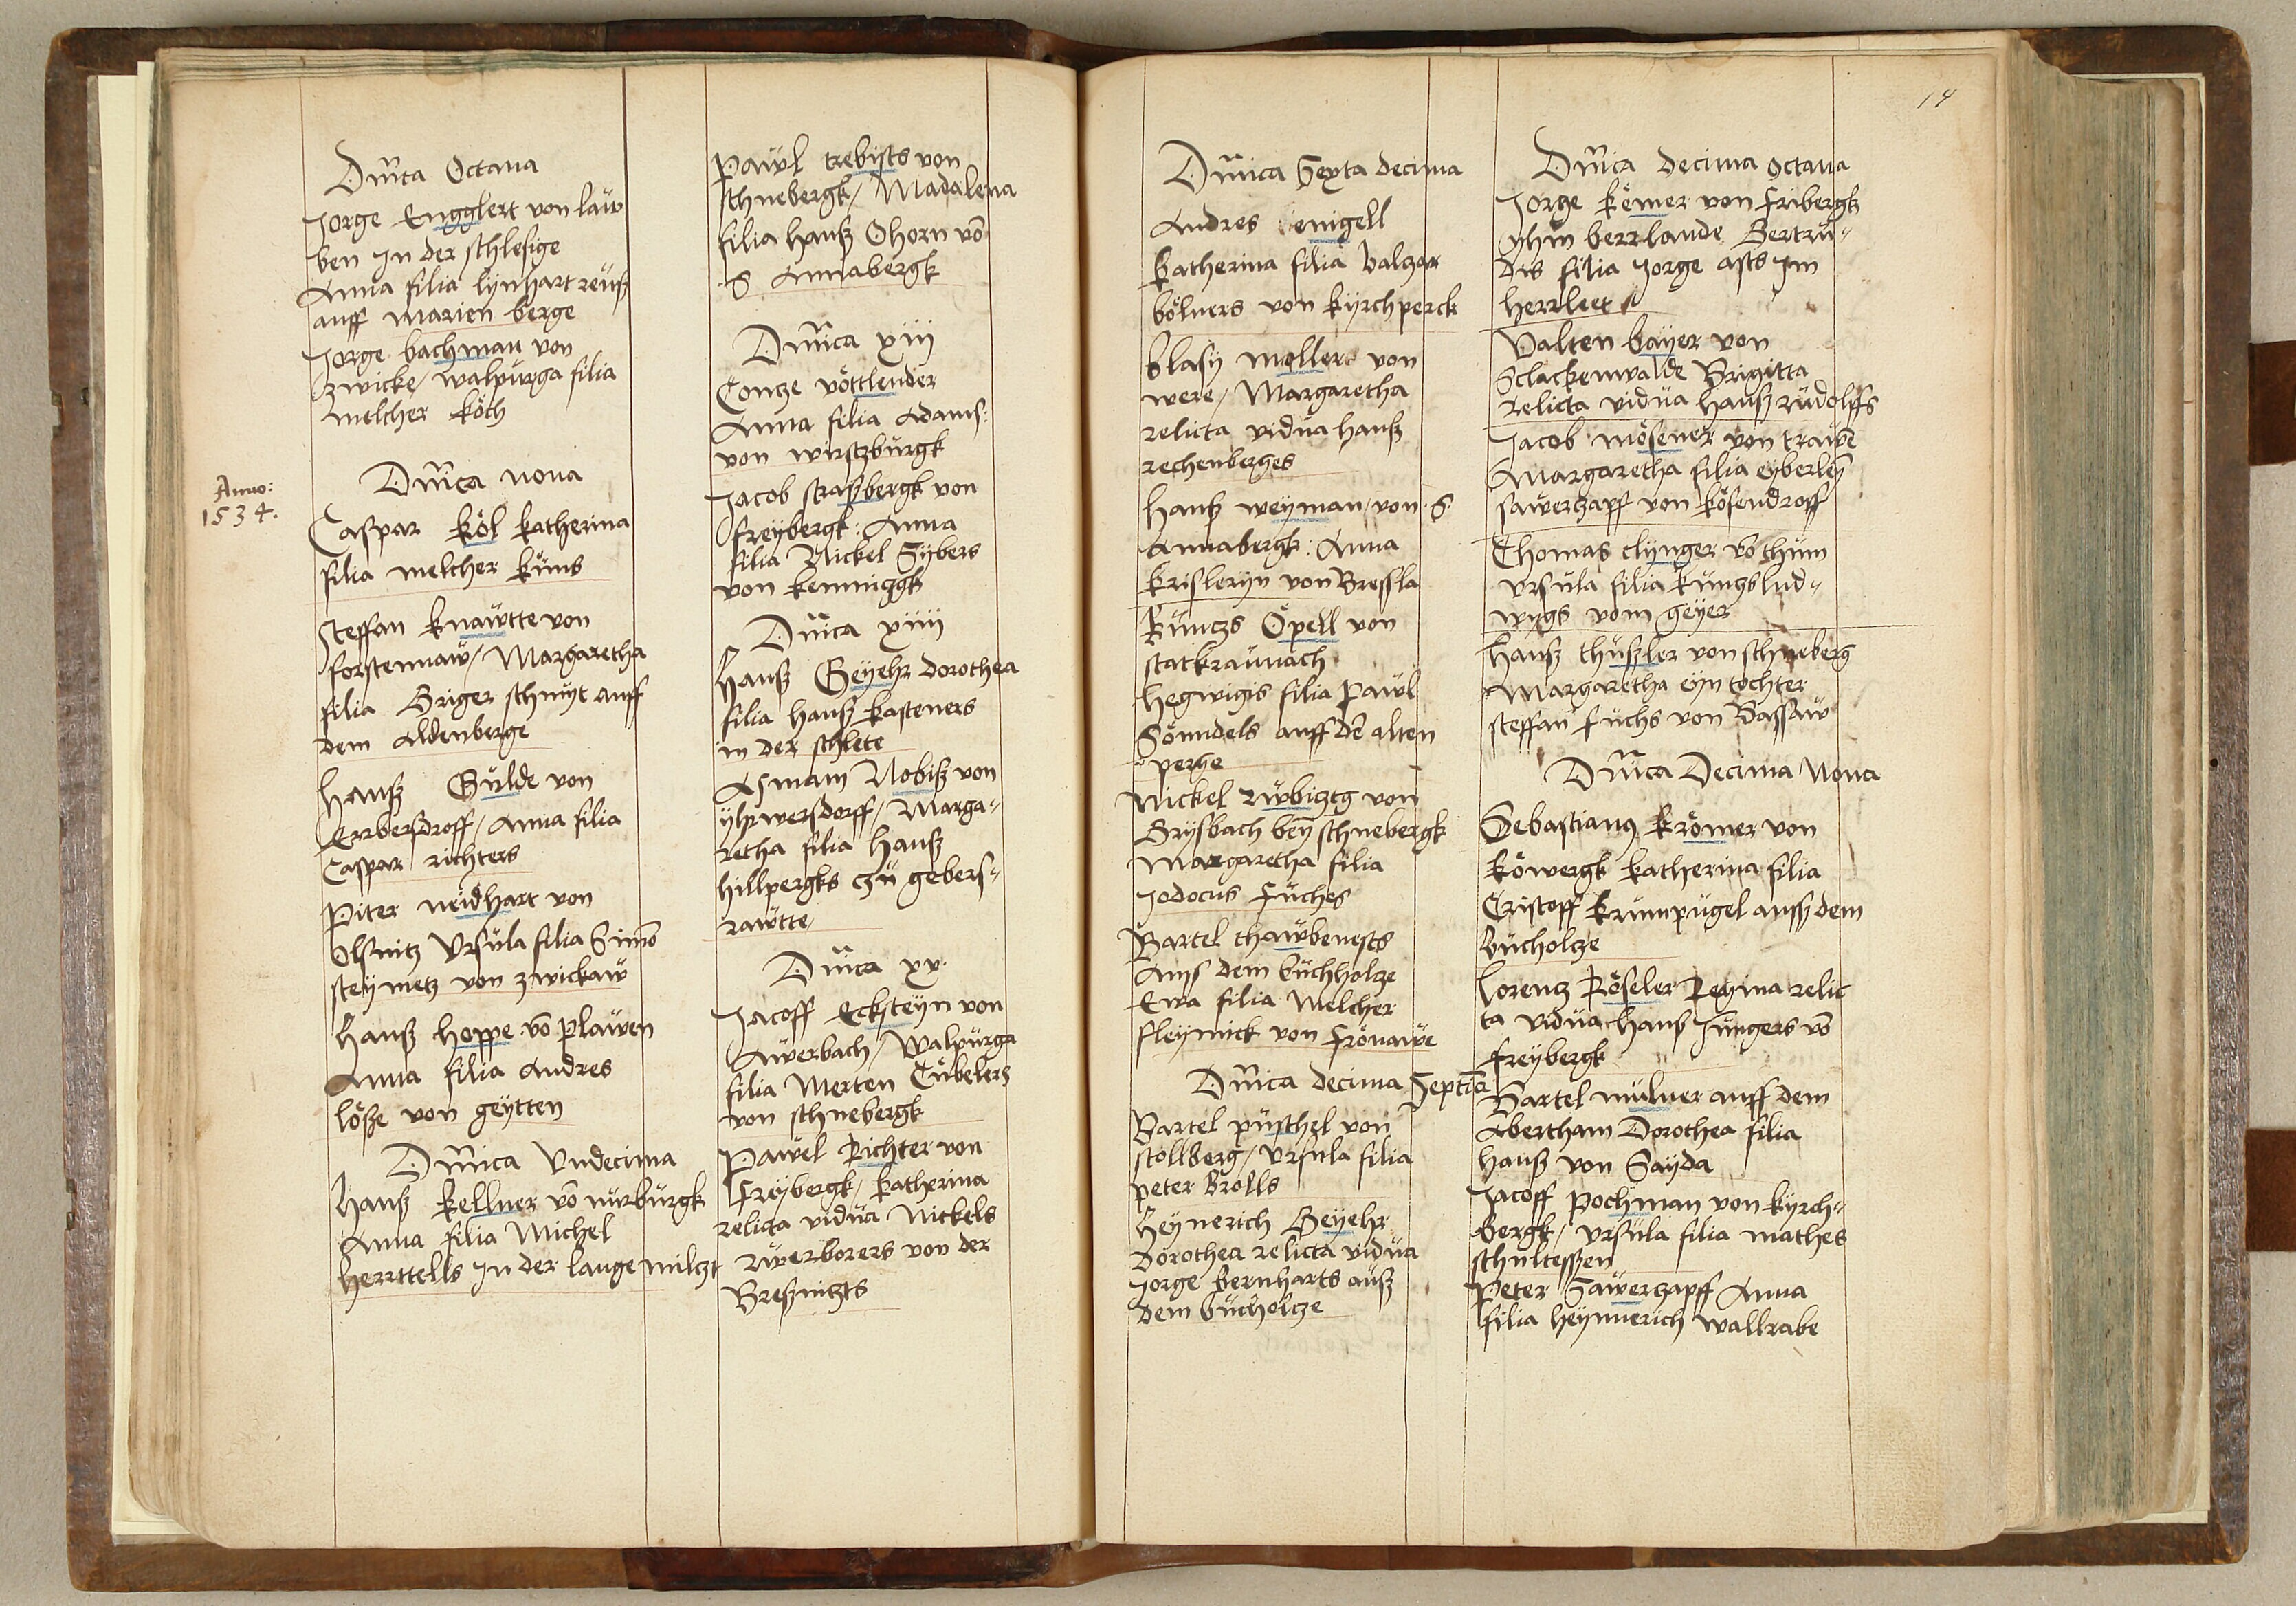 Dm̄ca Octava
Jorge Engglert von law
ben Jn der schlesige
Anna filia lynhart reuß
auff Marien berge
Jorge bachman von
zwicke / walpurga filia
melcher köch
Dm̄ca nona
Anno:
1534.
Caspar Köl katherina
filia melcher kuns
Steffan knawtte von
forstennaw / Margaretha
filia Briger schmyt auff
dem Aldenberge
Hanß Gulde von
Errbersdroff / Anna filia
Caspar richters
Piter neidhart von
Olsnitz Ursula filia Simō
steymetz von zwickaw
Hanß hoppe vō plawen
Anna filia Andres
löße von geytten
Dm̄ica Undecima
Hanß kellner vō nurburgk
Anna filia Michel
herrttells Jn der lange milczt
Pawl trebists von
schnebergk / Madalena
filia hanß Ohorn vō
S Annabergk
Dm̄ca xiii
Contze vöttlender
Anna filia Adams:
von wirstzburgk
Jacob straßbergk von
freybergk: Anna
filia Nickel Sybers
von kemniczgk
Dm̄ca xiiii
Hanß Geyehr dorothea
filia hanß kasteners
in der schlete
Asmam Nobiß von
yhrwersdorff / Marga"
retha filia Hanß
hillpergks czu gebers"
rawtte /
Dm̄ca xv.
Jacoff Ecksteyn von
Awerbach / Walpurga
filia Merten Cubelers
von schnebergk
Pawel Richter von
Freybergk / katherina
relicta vidua Nickels
rwerborers von der
Breßnitzts
14
Dm̄ica Sexta decima
Andres enigell
katherina filia balczar
bölners von kyrchperck
blasy moller von
were / Margaretha
relicta vidua hanß
rechenberges
Hanß weyman / von S.
Annabergk: Anna
krisleryn von Bressla
Kunczs Öpell von
statkraunach
Hegwigis filia pawl
Sönndels auff dē alten
perge
Nickel rwbicztg von
Grysbach bey schnebergk
Margaretha filia
Jodocus Fuches
Bartel thawbenests
Auß dem buchholcze
Ewa filia Melcher
fleymick von Frönawe
Dm̄ica decima Septīa
Bartel puschel von
stollberg / Ursula filia
peter Brölls
Heynerich Geyehr
Dorothea relicta vidua
Jorge bernharts auß
dem bucholcze
Dm̄ica decima octava
Jorge kemer von Fribergk
yhm berrlande Gertru"
dis filia Jorge asts Jm
herrleet
Valten bayer von
Sclackenwalde Brigitta
Relicta vidua hanß rudolffs
Jacob mösener von trawē
Margaretha filia eyberleyn
sawerzapf von kösendroff
Thomas clynger vō thum
Ursula filia kunczs lud"
wygs vom geyer
Hanß thußler von schneberg
Margaretha eyn tochter
steffan fuchs von Bassaw
Dm̄ca Decima Nona
Sebastianus krömer von
köwergk katherina filia
Cristoff krumpugel auß dem
bucholcze
Lorentz Röseler Regina relic
ta vidua hanß Jungers vō
freybergk
Bartel mulner auff dem
Abertham Dorothea filia
Hanß von Sayda
Jacoff pochman von kyrch"
bergk / Ursula filia mathes
schulteßen
Peter Sawerzapff Anna
filia heynnerich wallrabe